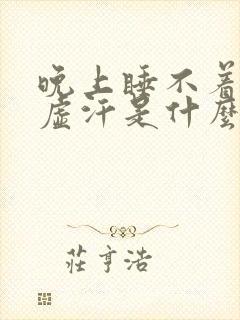 晚上睡不着
虚汗是什麽
莊亨浩